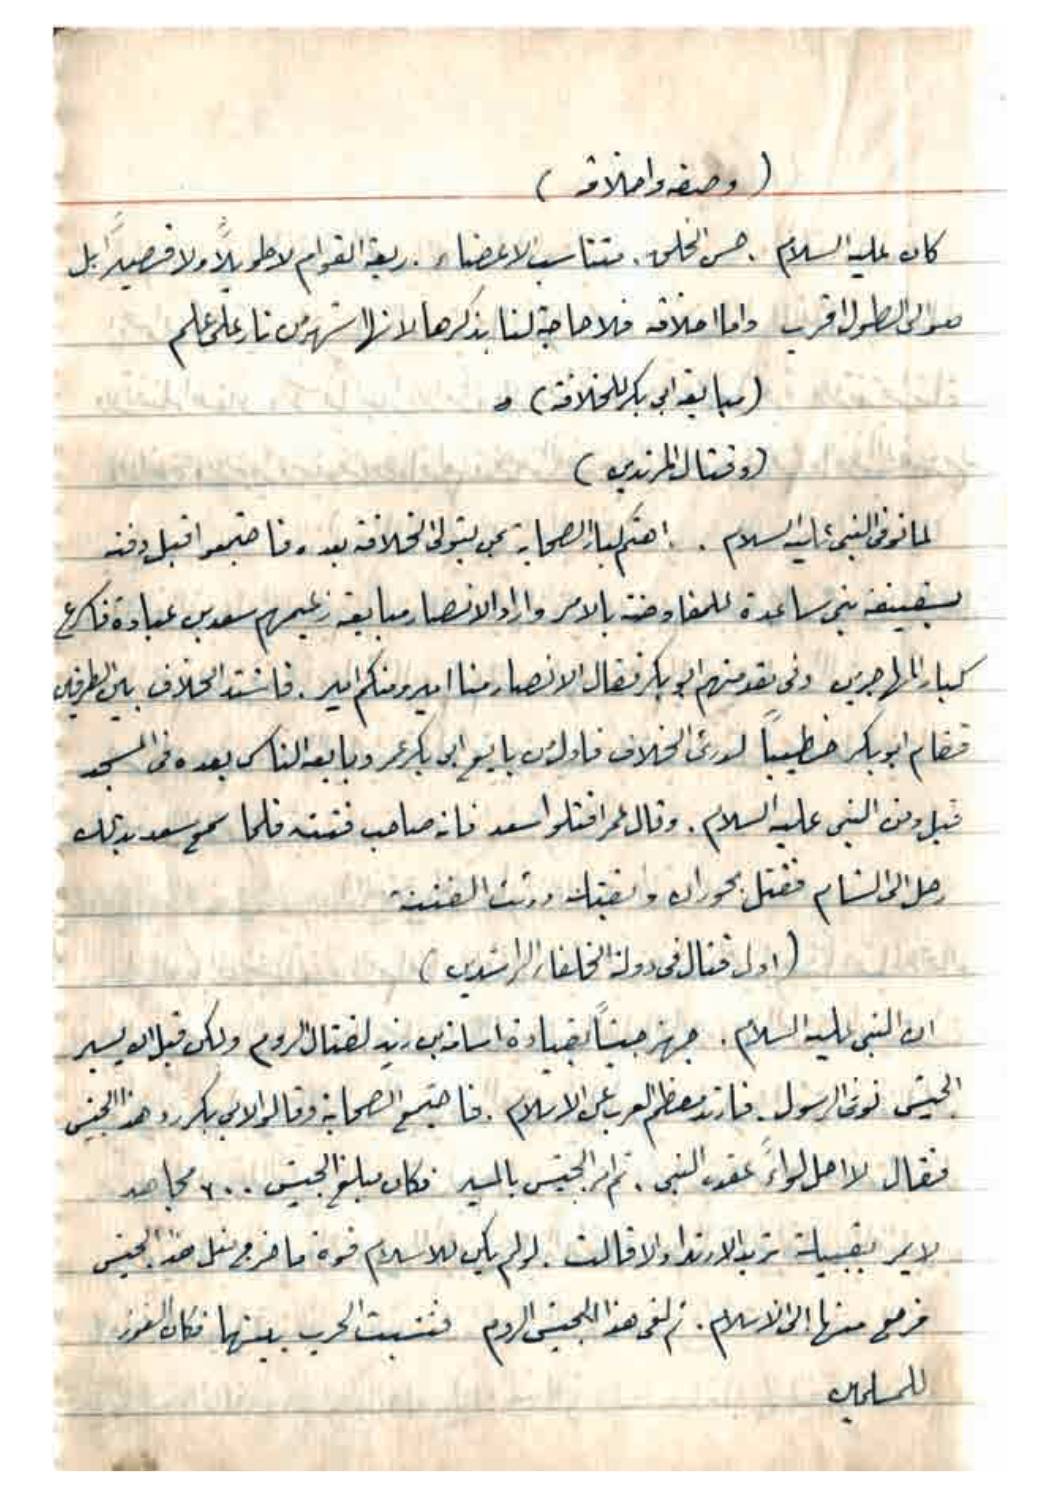 ( وصفه واخلاقه )
كان عليه السلام . حسن الخلق . متناسب الاعضاء . ربعة القوام لا طويلاً ولا قصيراً بل
هو الى الطول اقرب واما اخلاقه فلا حاجة لنا بذكرها لانها اشهر من نار على علم
( مبايعة ابي بكر للخلافة ) و
( وقتال المرتدين )
لما توفى النبي عليه السلام . اهتم كبار الصحابة بمن يتولى الخلافة بعده فاجتمعوا قبل دفنه
بسقيفة بني ساعدة للمفاوضة بالامر واراد الانصار مبايعة زعيمهم سعد بن عبادة فاسرع
كبار المهاجرين وفي مقدمتهم ابو بكر فقال الانصار منا امير ومنكم امير . فاشتد الخلاف بين الطرفين
فقام ابو بكر خطيباً الخلاف فاول من بايع ابي بكر عمر وبايعه الناس بعده في المسجد
قبل دفن النبي عليه السلام . وقال عمر اقتلوا سعد فانه صاحب فتنه فلما سمع سعد بذلك
رحل الى الشام فقتل بحوران الفتنة
( اول قتال في دولة الخلفاء الراشدين )
ان النبي عليه السلام . جهز جيشاً بقيادة اسامة بن زيد لقتال الروم ولكن قبل ان يسير
الجيش توفى الرسول . فارتد معظم العرب عن الاسلام . فاجتمع الصحابة وقالوا لابي بكر رد هذا الجيش
فقال لا احل لواءً عقده النبي . ثم امر الجيش بالمسير فكان مبلغ الجيش ٦٠٠ مجاهد
لا يمر بقبيلة تريد الارتداد الا قالت . لو لم يكن للاسلام قوة ما خرج مثل هذا الجيش
فرجع منها الى الاسلام . ثم لقى هذا الجيش الروم فنشبت الحرب بينها فكان الفوز
للمسلمين